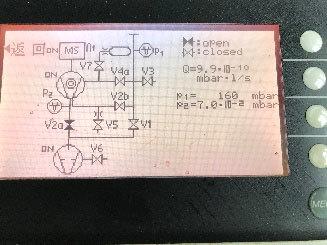 返 回 ON MS P1
:open
:closed
V7
ON
V4a V3
Q=9.9·10⁻¹⁰
mbar·l/s
P2
V2b
P1= 160 mbar
P2=7.0·10⁻² mbar
V2a V5 V1
ON V6
ME